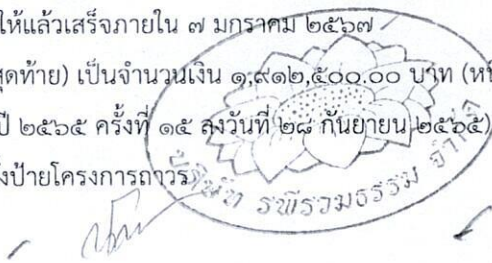 ให้แล้วเสร็จภายใน ๗ มกราคม ๒๕๖๗
สุดท้าย) เป็นจำนวนเงิน ๑,๙๑๒,๕๐๐.๐๐ บาท (หนึ
ปี ๒๕๖๕ ครั้งที่ ๑๕ ลงวันที่ ๒๘ กันยายน ๒๕๖๕)
ั้งป้ายโครงการถาวร
บริษัท รพีรวมธรรม จำกัด